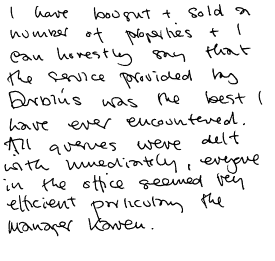 I have bought + sold a
number of properties + I
can honestly say that
the service provided by
was the best I
have ever encountered.
All queries were delt
with immediately, everyone
in the office seemed very
efficient particulary the
manager Karen.